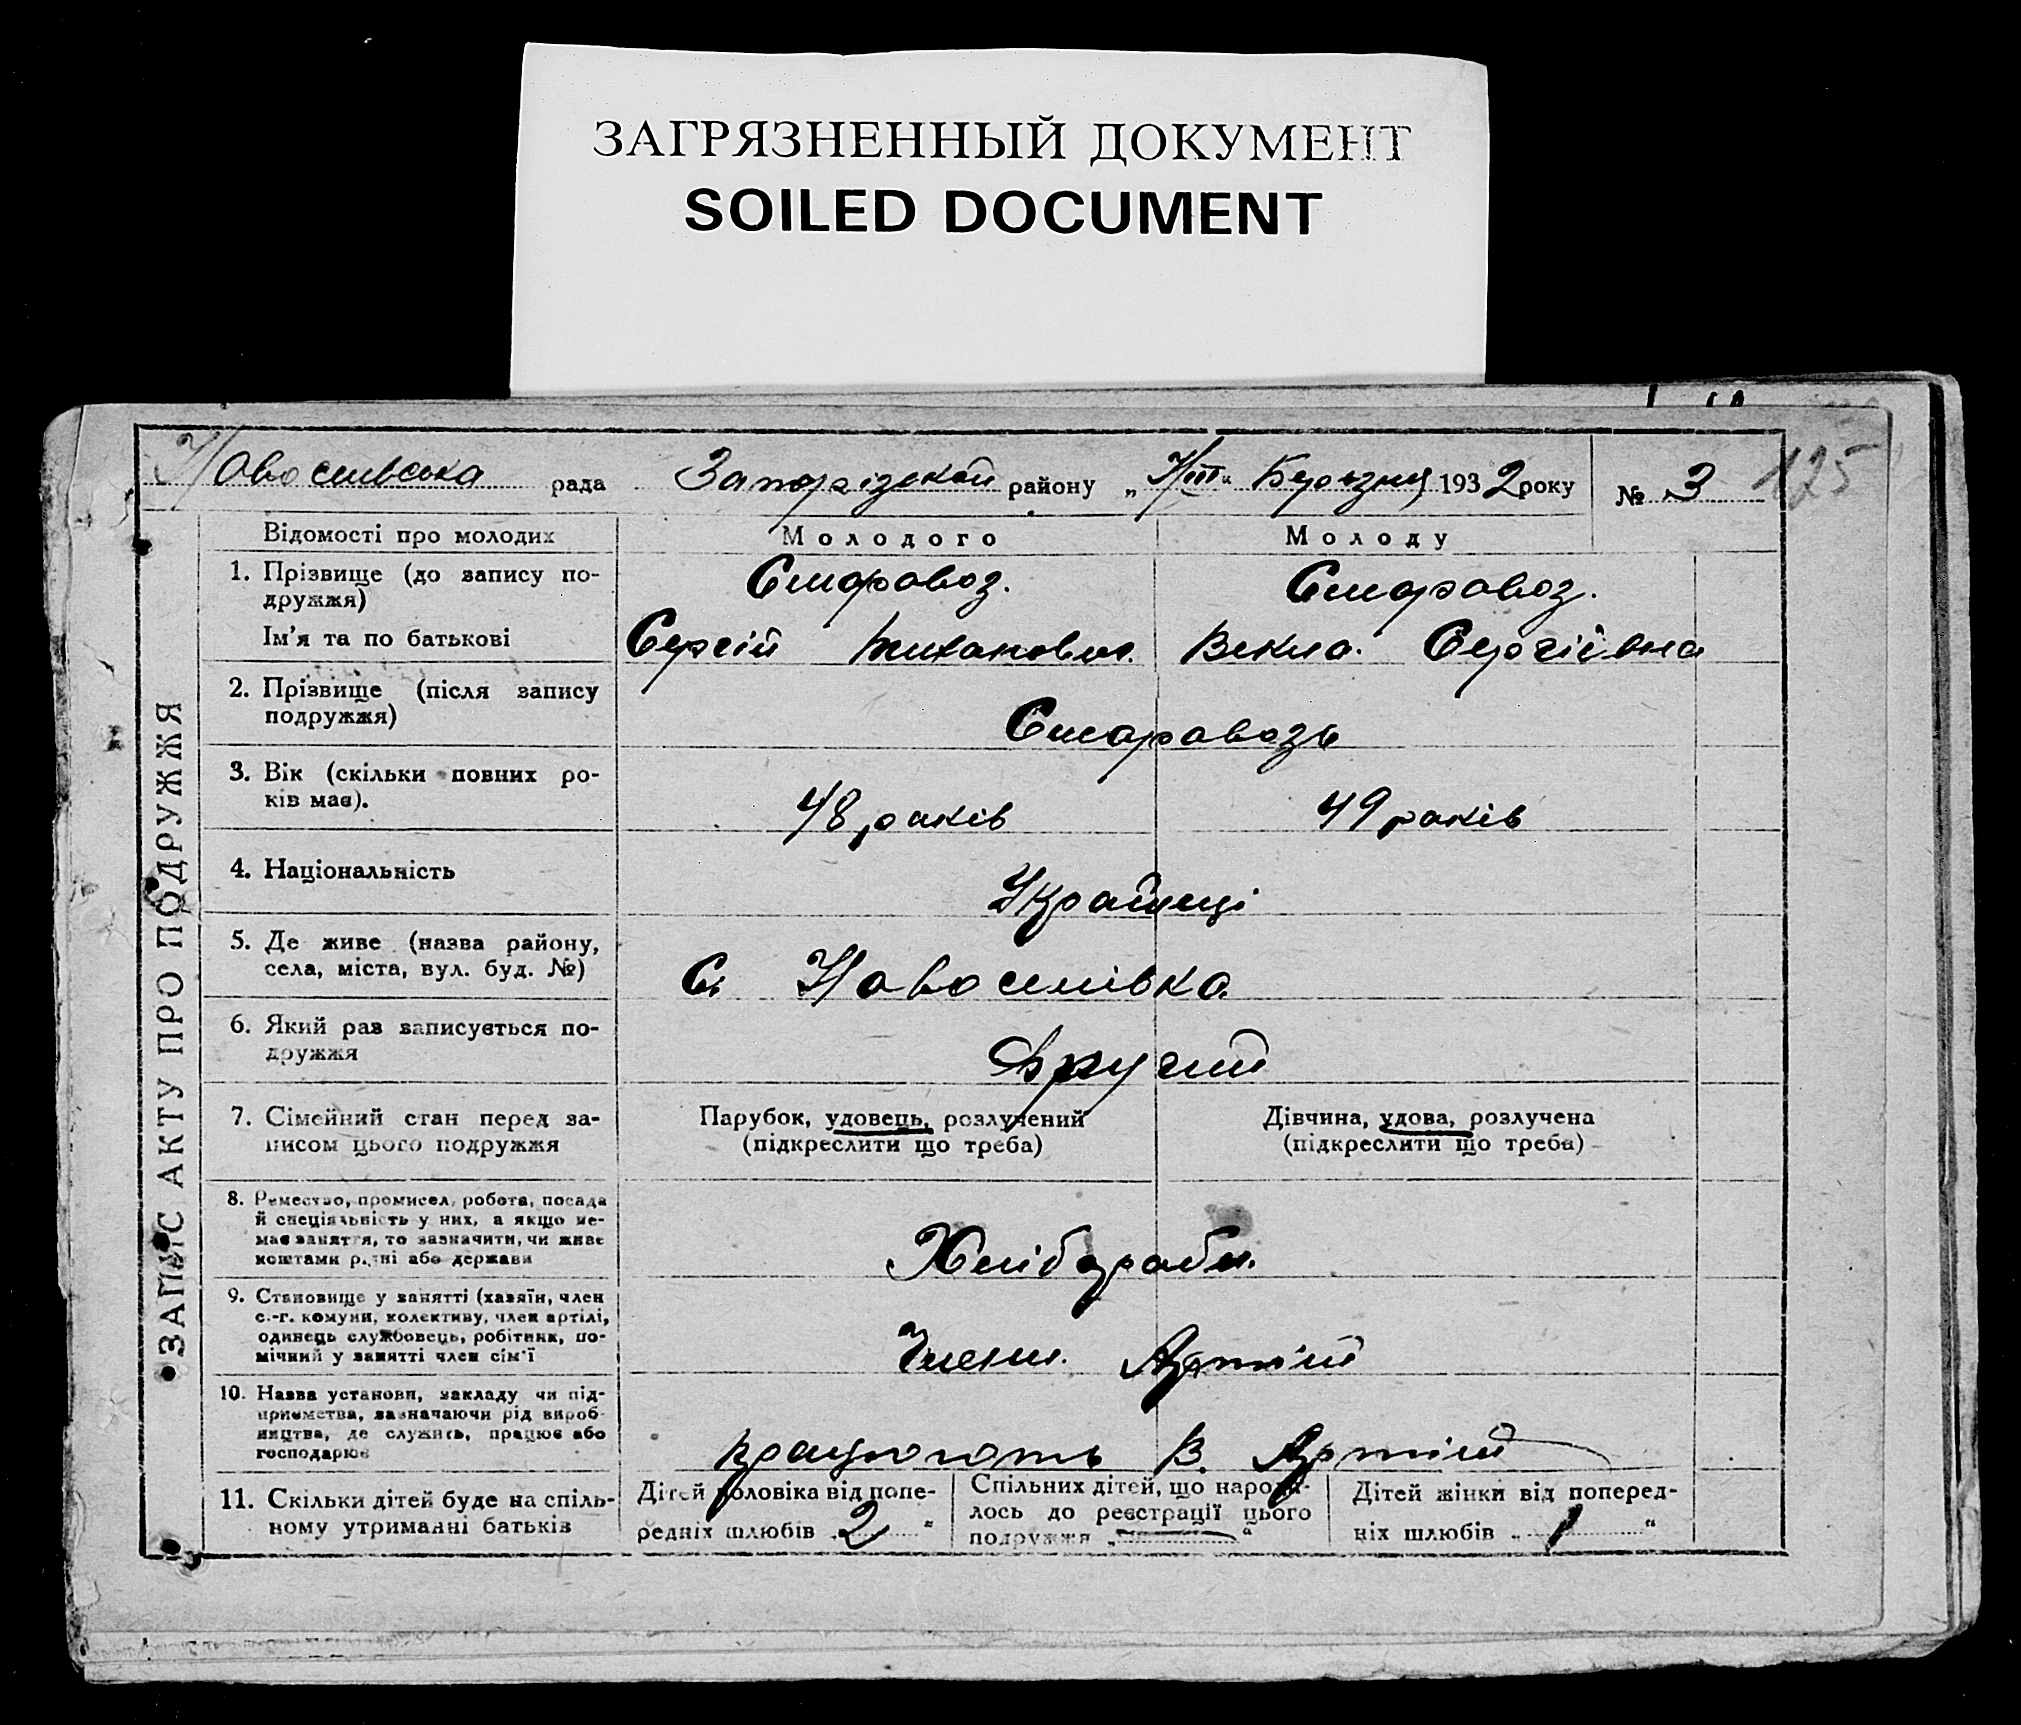 ЗАГРЯЗНЕННЫЙ ДОКУМЕНТ
SOILED DOCUMENT
125
Новоселівська рада Запорізской району „ /III “ Березня 1932 року № 3
ЗАПИС АКТУ ПРО ПОДРУЖЖЯ
Відомості про молодих Молодого Молоду
1. Прізвище (до запису по-
дружжя) Старовоз. Старовоз.
Ім'я та по батькові Сергій Тихонович. Векла. Сергіївна
2. Прізвище (після запису
подружжя) Старовози
3. Вік (скільки повних ро-
ків має). 48 років 49 років
4. Національність Українці
5. Де живе (назва району,
села, міста, вул. буд. №) С. Новоселівка.
6. Який раз записується по-
дружжя Другий
7. Сімейний стан перед за- Парубок, удовець, розлучений Дівчина, удова, розлучена
писом цього подружжя (підкреслити що треба) (підкреслити що треба)
8. Ремество, промисел, робота, посада
й спеціяльність у них, а якщо не-
має заняття, то зазначити, чи живе
коштами рідні або держави Хлібороби.
9. Становище у занятті (хазяїн, член
с.-г. комуни, колективу, член артілі,
одинець службовець, робітник, по-
мічний у занятті член сім'ї Члени. Артілі
10. Назва установи, закладу чи під-
приємства, зазначаючи рід вироб-
ництва, де служить, працює або
господарює працюють В. Артілі
11. Скільки дітей буде на спіль-
ному утриманні батьків
Дітей чоловіка від попе-
редніх шлюбів „ 2 “
Спільних дітей, що народи-
лось до реєстрації цього
подружжя „ — “
Дітей жінки від поперед-
ніх шлюбів „ 1 “